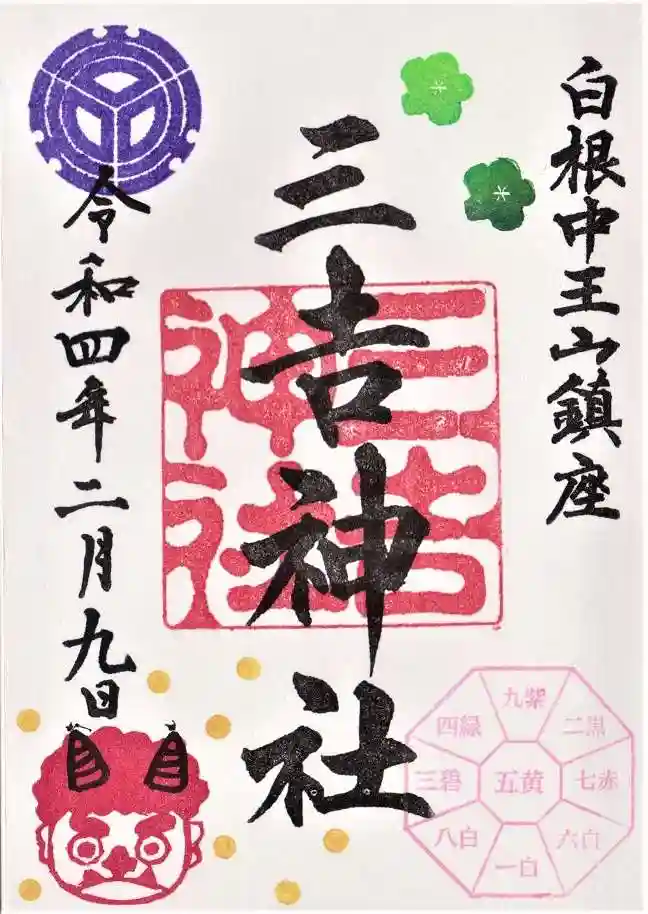 白根中王山鎮座
三吉神社
三吉
神社
令和四年二月九日
九紫
四緑
二黒
三碧
五黄
七赤
八白
六白
一白